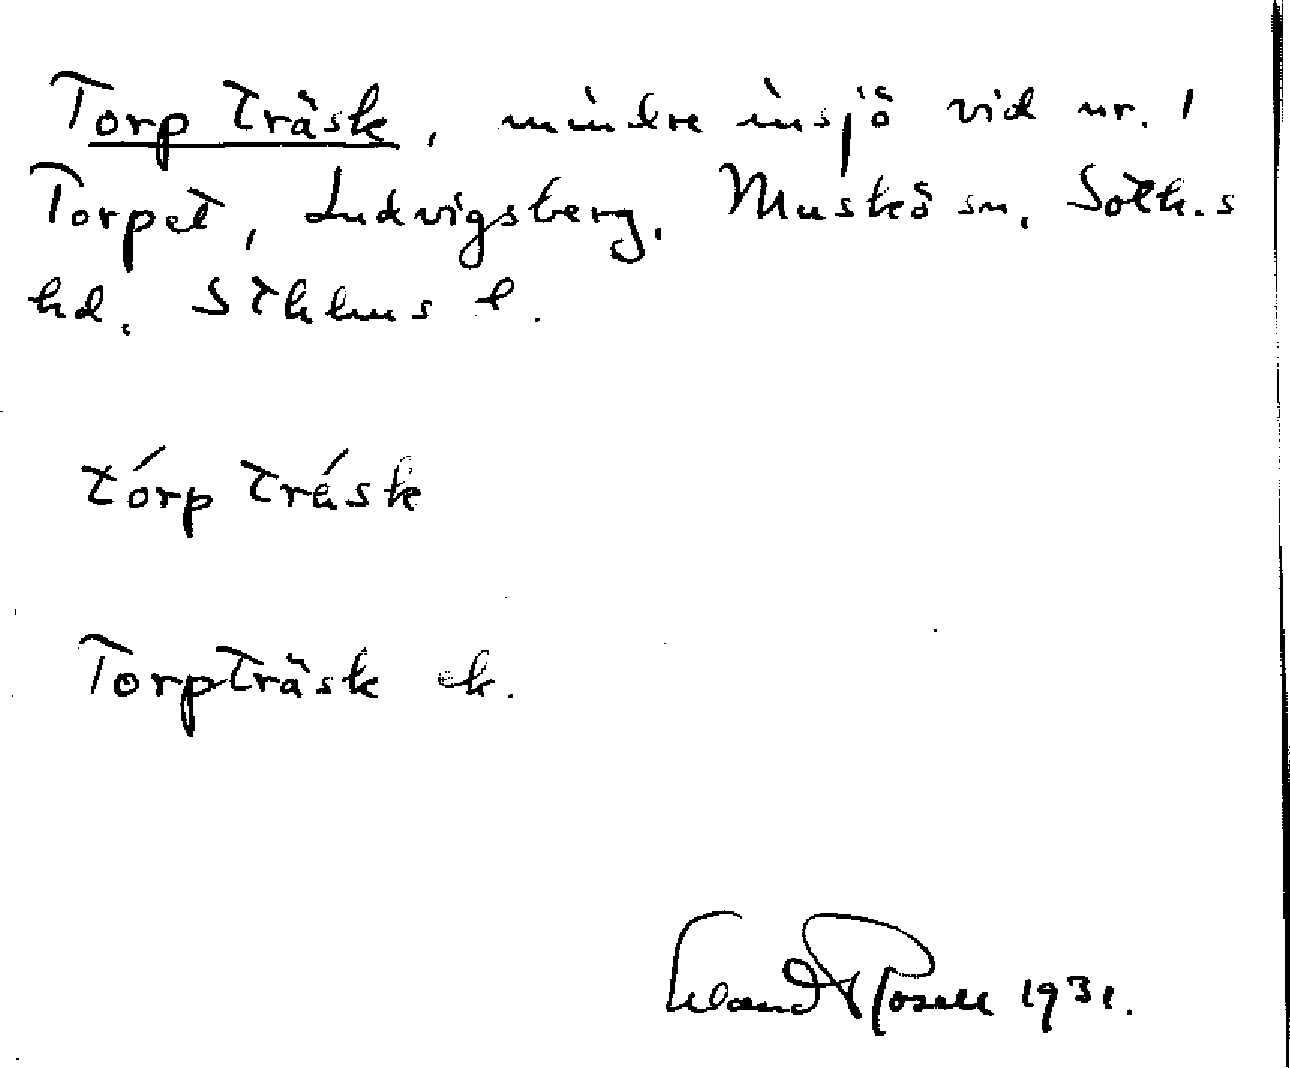 Torp träsk, mindre insjö vid nr. 1
Torpet, Ludvigsberg. Muskö sn. Soth.s
hd. Sthlms l.
tórp träsk
Torpträsk ek.
Erland Rosell 1931.